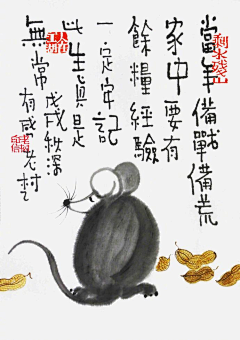 當年備戰備荒
家中要有
餘糧經驗
一定牢記
此生真是
無常
戊戌秋深
有感
老村